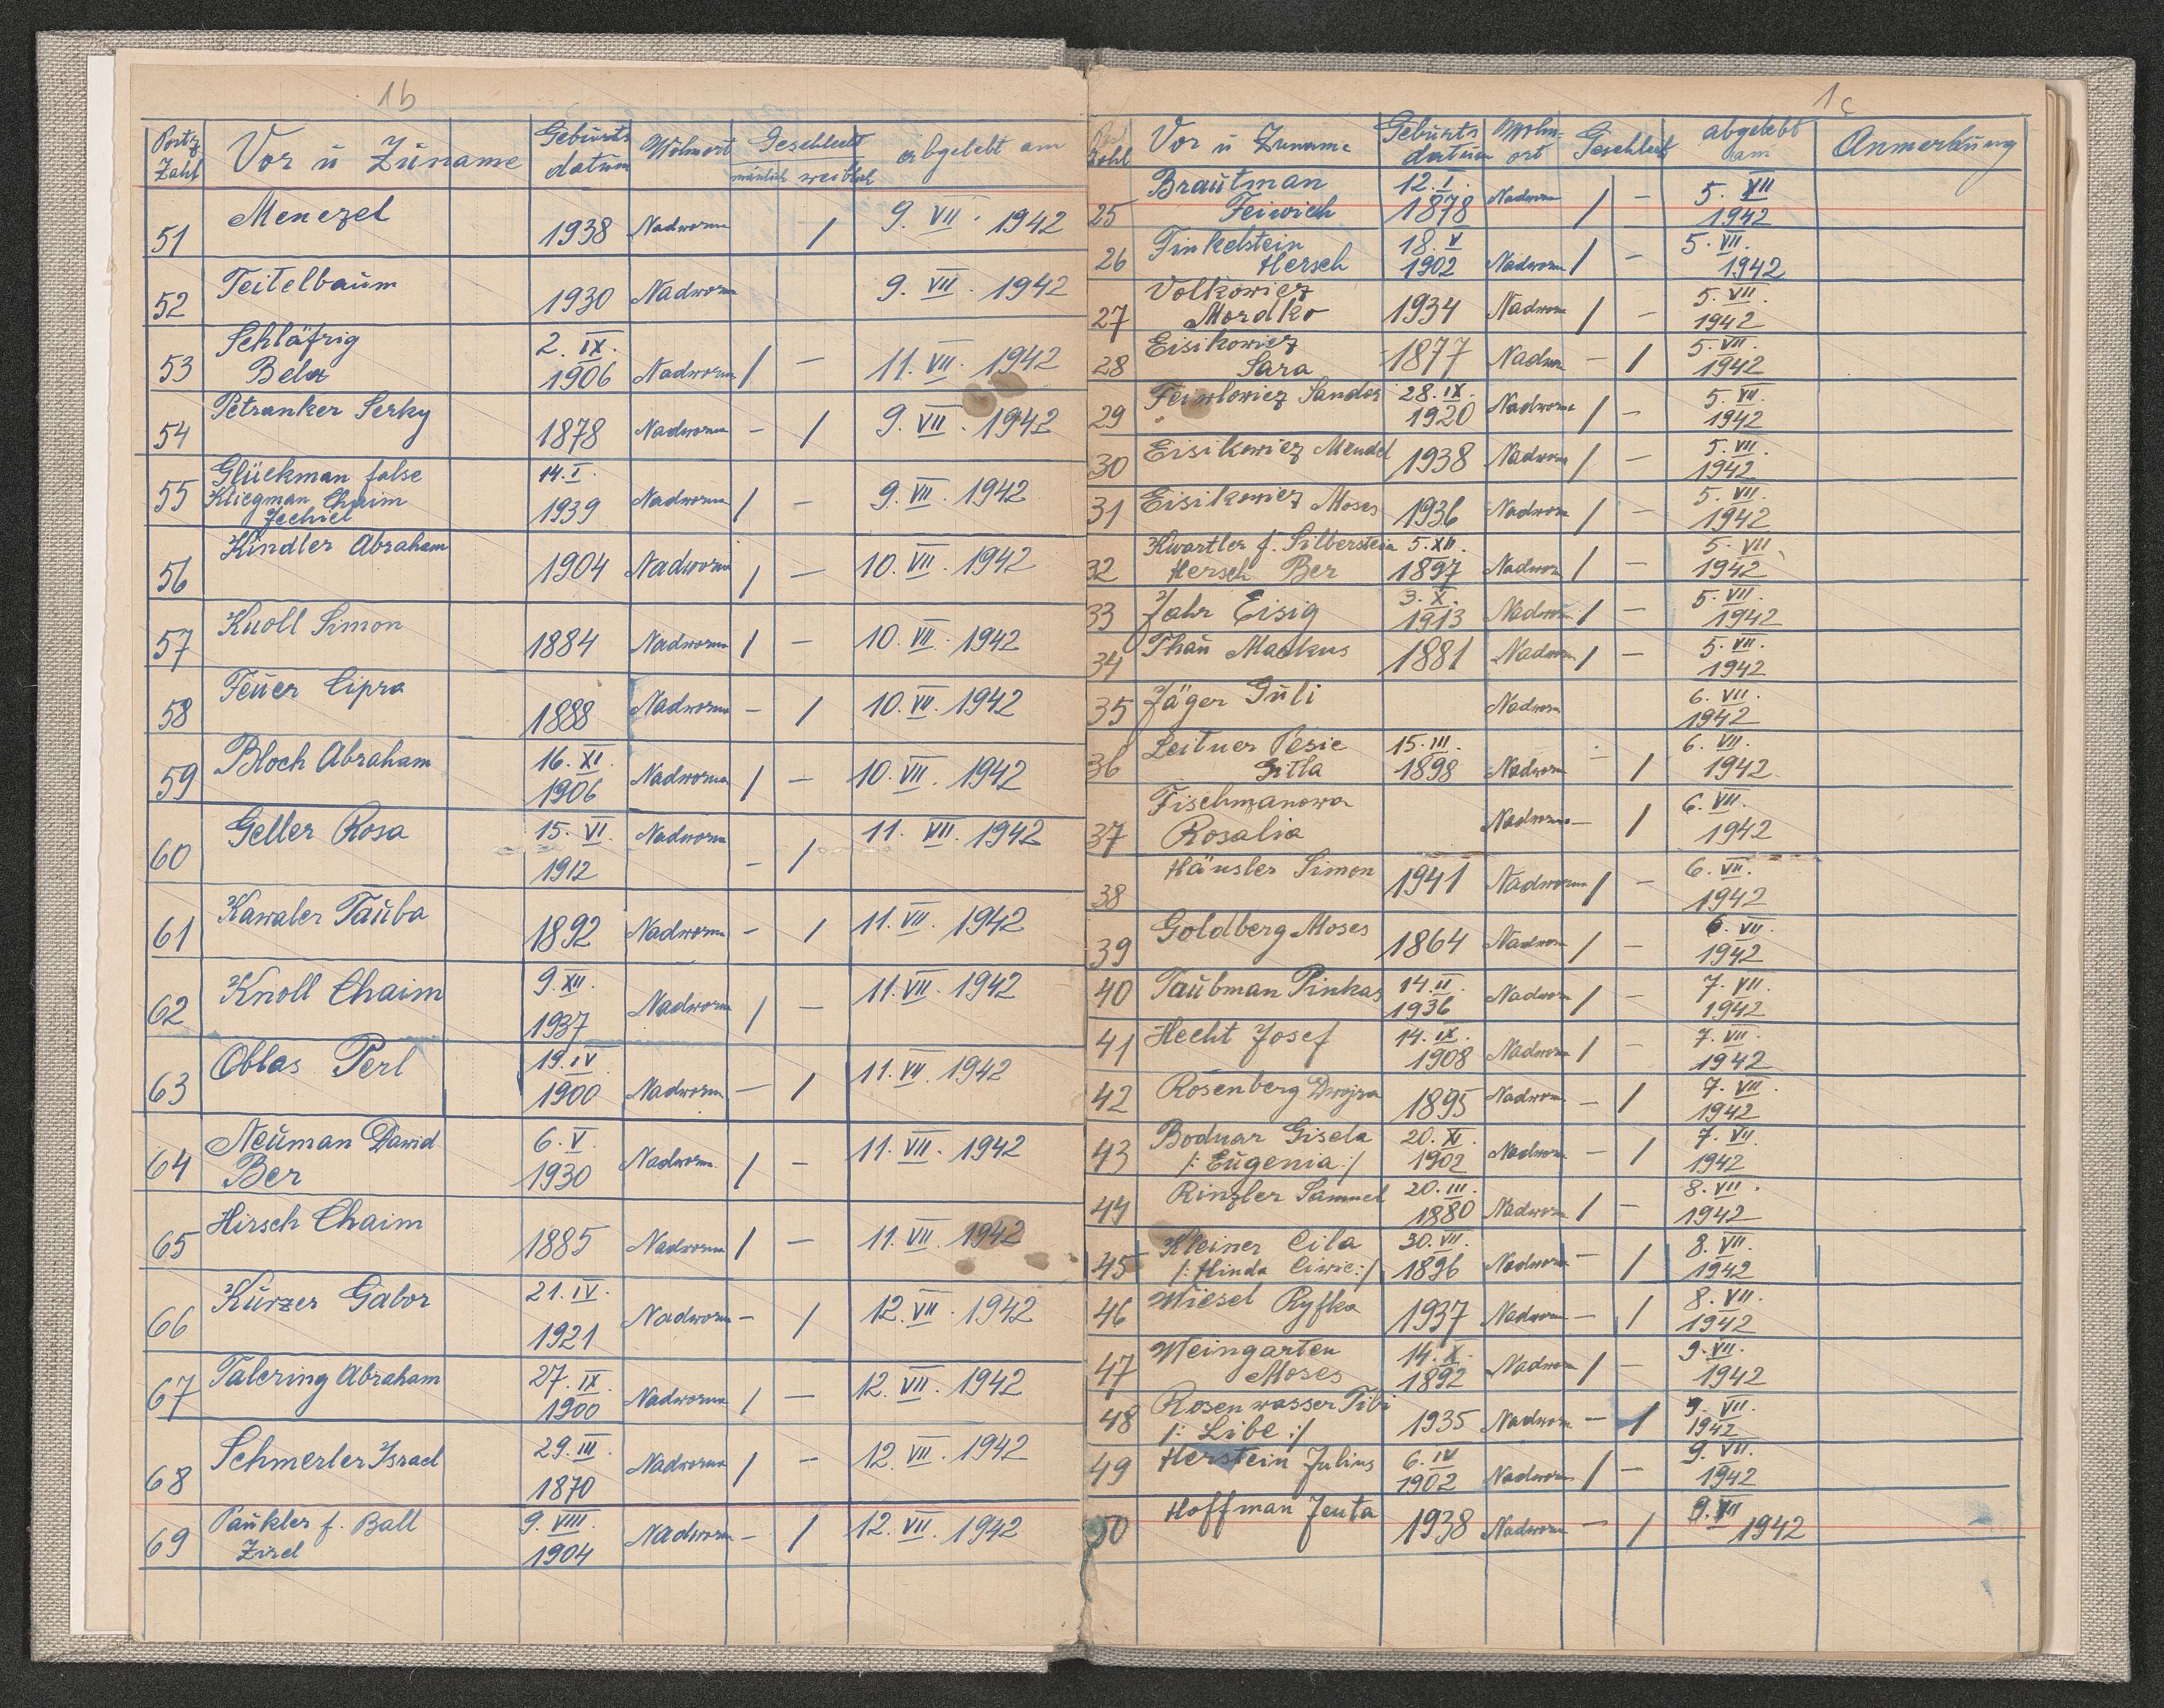 1b
Portz Zahl Vor ü Züname Gebürts datüm Wohnort Geschlecht männlich weiblich abgelebt am
51 Menczel 1938 Nadworna / 9. VII. 1942
52 Teitelbaüm 1930 Nadworna 9. VII. 1942
53 Schläfrig Bela 2. IX. 1906 Nadworna / — 11. VII. 1942
54 Petranker Serky 1878 Nadworna - / 9. VII. 1942
55 Glückman false Kliegman Chaim Jechiel 14. I. 1939 Nadworna / - 9. VII. 1942
56 Kindler Abraham 1904 Nadworna / — 10. VII. 1942
57 Knoll Simon 1884 Nadworna / - 10. VII. 1942
58 Feüer Cipra 1888 Nadworna - / 10. VII. 1942
59 Bloch Abraham 16. XI. 1906 Nadworna / - 10. VII. 1942
60 Geller Rosa 15. VI. 1912 Nadworna - / 11. VII. 1942
61 Kawaler Taüba 1892 Nadworna - / 11. VII. 1942
62 Knoll Chaim 9. XII. 1937 Nadworna / - 11. VII. 1942
63 Oblas Perl 19. IV 1900 Nadworna — / 11. VII. 1942
64 Neüman Dawid Ber 6. V. 1930 Nadworna / - 11. VII. 1942
65 Hirsch Chaim 1885 Nadworna / — 11. VII. 1942
66 Kürzer Gabor 21. IV. 1921 Nadworna - / 12. VII. 1942
67 Talering Abraham 27. IX. 1900 Nadworna / — 12. VII. 1942
68 Schmerler Israel 29. III. 1870 Nadworna / - 12. VII. 1942
69 Paükler f. Ball Zirel 9. VIII. 1904 Nadworna - / 12. VII. 1942
1c
Zahl Vor ü Zuname Gebürts datüm Wohn-ort Geschlecht abgelebt am Anmerküng
25 Braütman Feiwich 12. I. 1878 Nadworna / - 5. VII 1942
26 Finkelstein Hersch 18. V 1902 Nadworna / - 5. VII. 1942
27 Volkowicz Mordko 1934 Nadworna / - 5. VII. 1942
28 Eisikowicz Sara 1877 Nadwor - / 5. VII. 1942
29 Feiwlowicz Sandor 28. IX. 1920 Nadworna / - 5. VII. 1942
30 Eisikowicz Mendel 1938 Nadworna / - 5. VII. 1942
31 Eisikowicz Moses 1936 Nadworna / - 5. VII. 1942
32 Kwartler f. Silberstein Hersch Ber 5. XII. 1897 Nadwor / - 5. VII. 1942
33 Jahr Eisig 3. X. 1913 Nadworn / - 5. VII. 1942
34 Thaü Markus 1881 Nadwor / - 5. VII. 1942
35 Jäger Güli Nadworn 6. VII. 1942
36 Leitner Pesie Gitla 15. III. 1898 Nadworn - / 6. VII. 1942
37 Fischmanowa Rosalia Nadworna - / 6. VII. 1942
38 Häusler Simon 1941 Nadworna / - 6. VII. 1942
39 Goldberg Moses 1864 Nadwor / - 6. VII. 1942
40 Taübman Pinkas 14. II. 1936 Nadworn / - 7. VII. 1942
41 Hecht Josef 14. IX. 1908 Nadworn / - 7. VII. 1942
42 Rosenberg Dwojra 1895 Nadworn - / 7. VII. 1942
43 Bodnar Gisela /: Eügenia :/ 20. XI. 1902 Nadworn - / 7. VII. 1942
44 Rinzler Samuel 20. III. 1880 Nadworn / - 8. VII. 1942
45 Kleiner Cila /: Hinda Ciwie :/ 30. VII. 1896 Nadworn - / 8. VII. 1942
46 Wiesel Ryfka 1937 Nadworn - / 8. VII. 1942
47 Weingarten Moses 14. X. 1892 Nadworn / - 9. VII. 1942
48 Rosenwasser Tibi /: Libe :/ 1935 Nadworn - / 9. VII. 1942
49 Herstein Julius 6. IV 1902 Nadworn / - 9. VII. 1942
50 Hoffman Jenta 1938 Nadworn - / 9. VII 1942